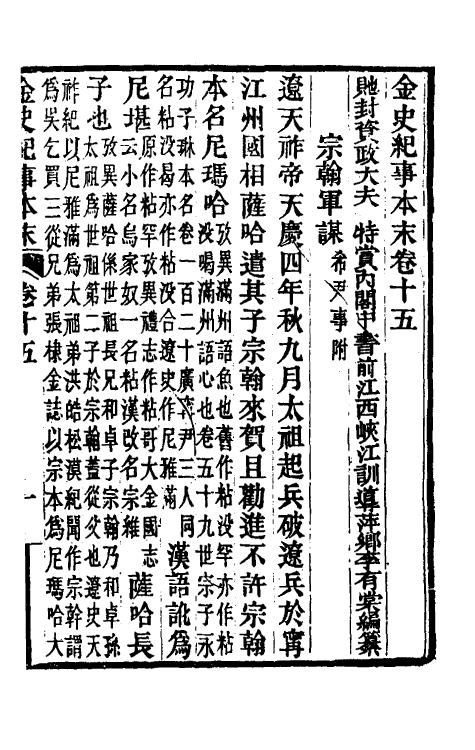 金史紀事本末卷十五
貤封資政大夫 特賞內閣中書前江西峽江訓導萍鄉李有棠編纂
宗翰軍謀 希尹事附
遼天祚帝天慶四年秋九月太祖起兵破遼兵於甯
江州國相薩哈遣其子宗翰來賀且勸進不許宗翰
本名尼瑪哈
攷異滿州語魚也舊作粘没罕亦作粘
没喝滿州語心也卷五十九世宗子永
功子琳本名卷一百二十廣寧尹三人同
名粘没曷亦作粘没合遼史作尼雅滿
漢語訛爲
尼堪
原作粘罕攷異禮志作粘哥大金國志
云小名烏家奴一名粘漢改名宗維
薩哈長
子也
攷異薩哈係世祖長兄和卓子宗翰乃和卓孫
太祖爲世祖第二子於宗翰蓋從父也遼史天
祚紀以尼雅滿爲太祖弟洪皓松漠紀聞作宗幹謂
爲吳乞買三從兄弟張棣金誌以宗本爲尼瑪哈大
金史紀事本末 卷十五 一